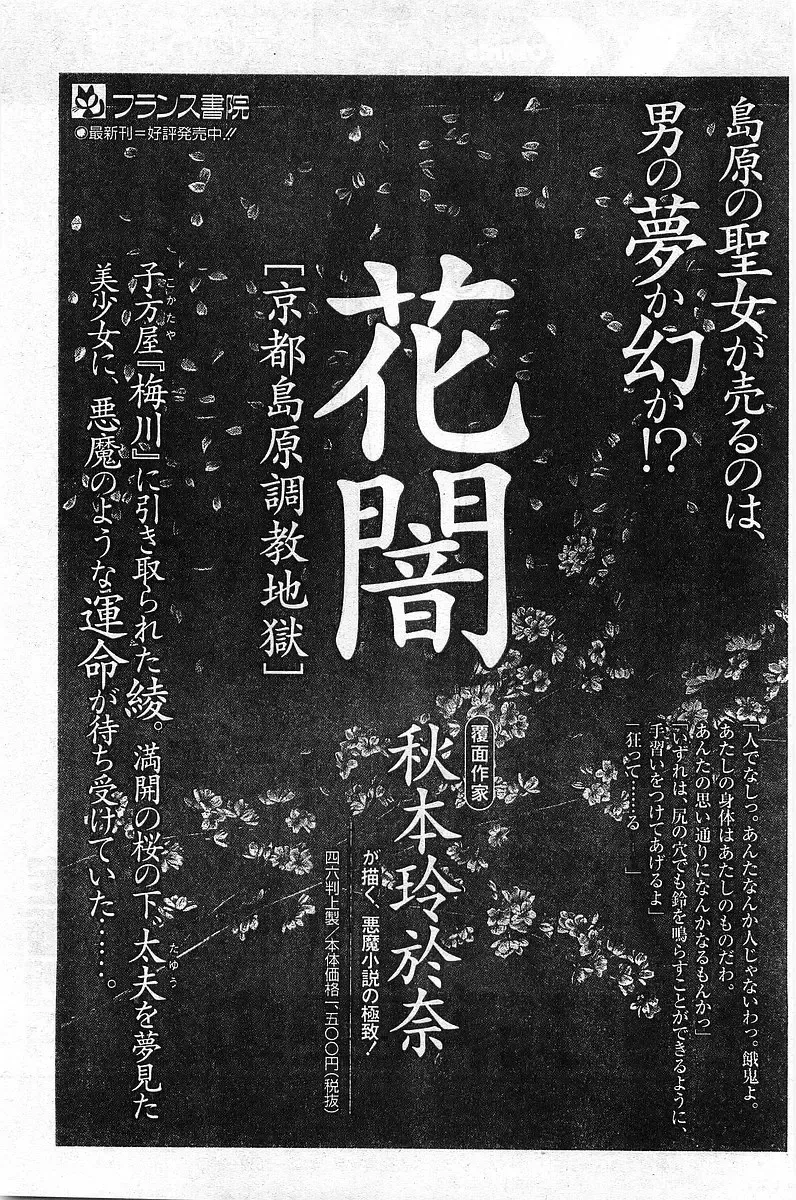 フランス書院
◉最新刊＝好評発売中!!
島原の聖女が売るのは、
男の夢か幻か!?
花闇
［京都島原調教地獄］
子方屋『梅川』に引き取られた綾。満開の桜の下、太夫を夢見た
こかたや
たゆう
美少女に、悪魔のような運命が待ち受けていた……。
「人でなしっ。あんたなんか人じゃないわっ。餓鬼よ。
あたしの身体はあたしのものだわ。
あんたの思い通りになんかなるもんかっ」
「いずれは、尻の穴でも鈴を鳴らすことができるように、
手習いをつけてあげるよ」
「狂って……る――」
覆面作家
秋本玲於奈
が描く、悪魔小説の極致！
四六判上製／本体価格一、五〇〇円（税抜）